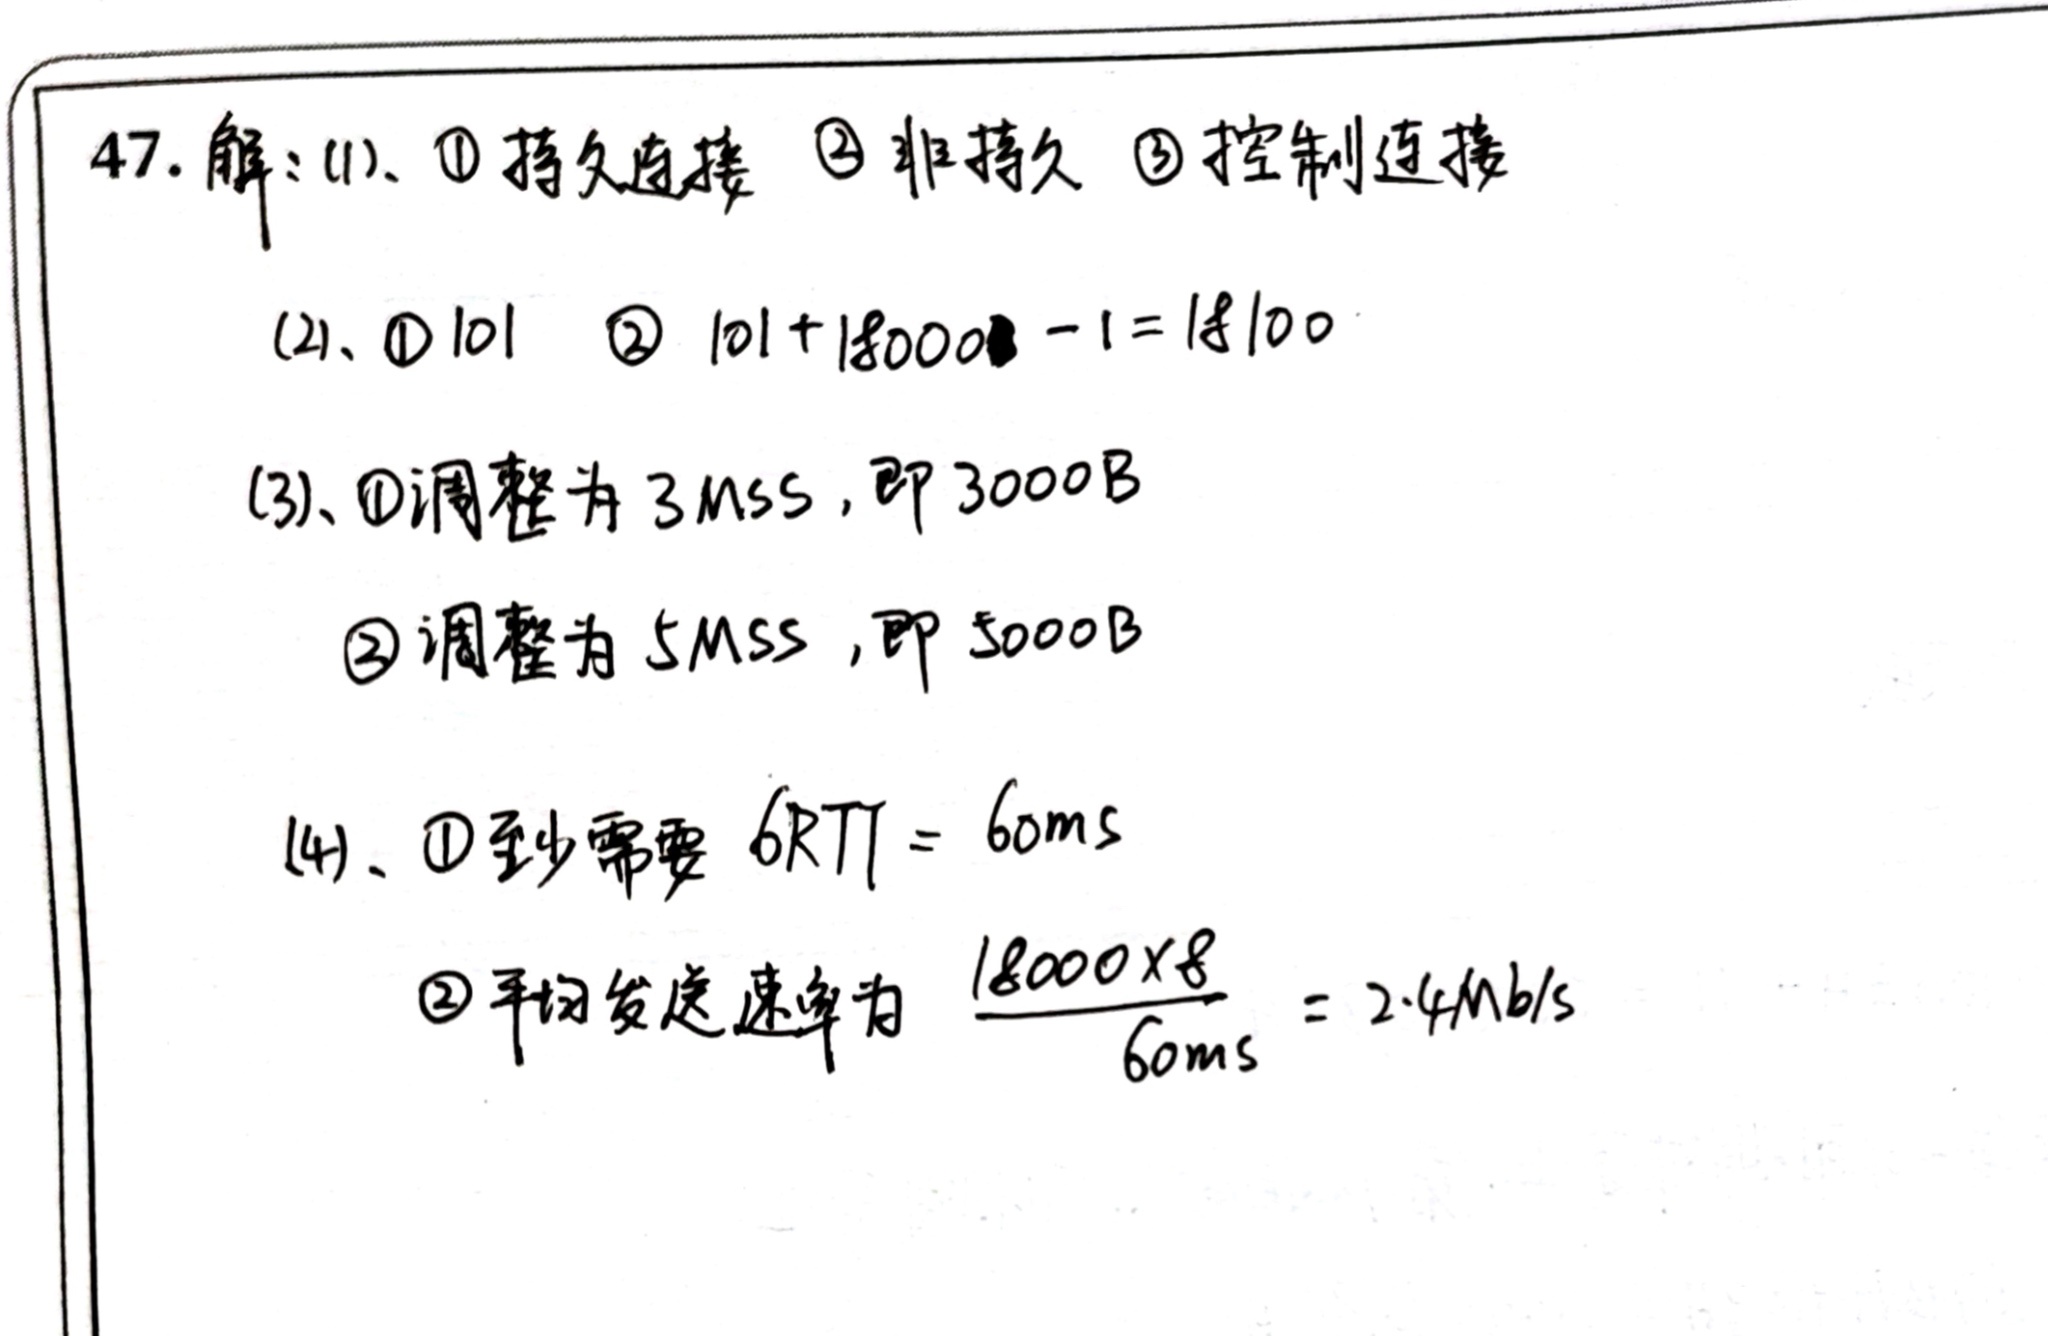 47. 解:(1)、① 持久连接 ② 非持久 ③ 控制连接
(2)、① 101 ② 101+18000-1=18100
(3)、①调整为 3MSS,即 3000B
②调整为 5MSS,即 5000B
(4)、①至少需要 6RTT = 60ms
②平均发送速率为 18000×8 / 60ms = 2.4Mb/s